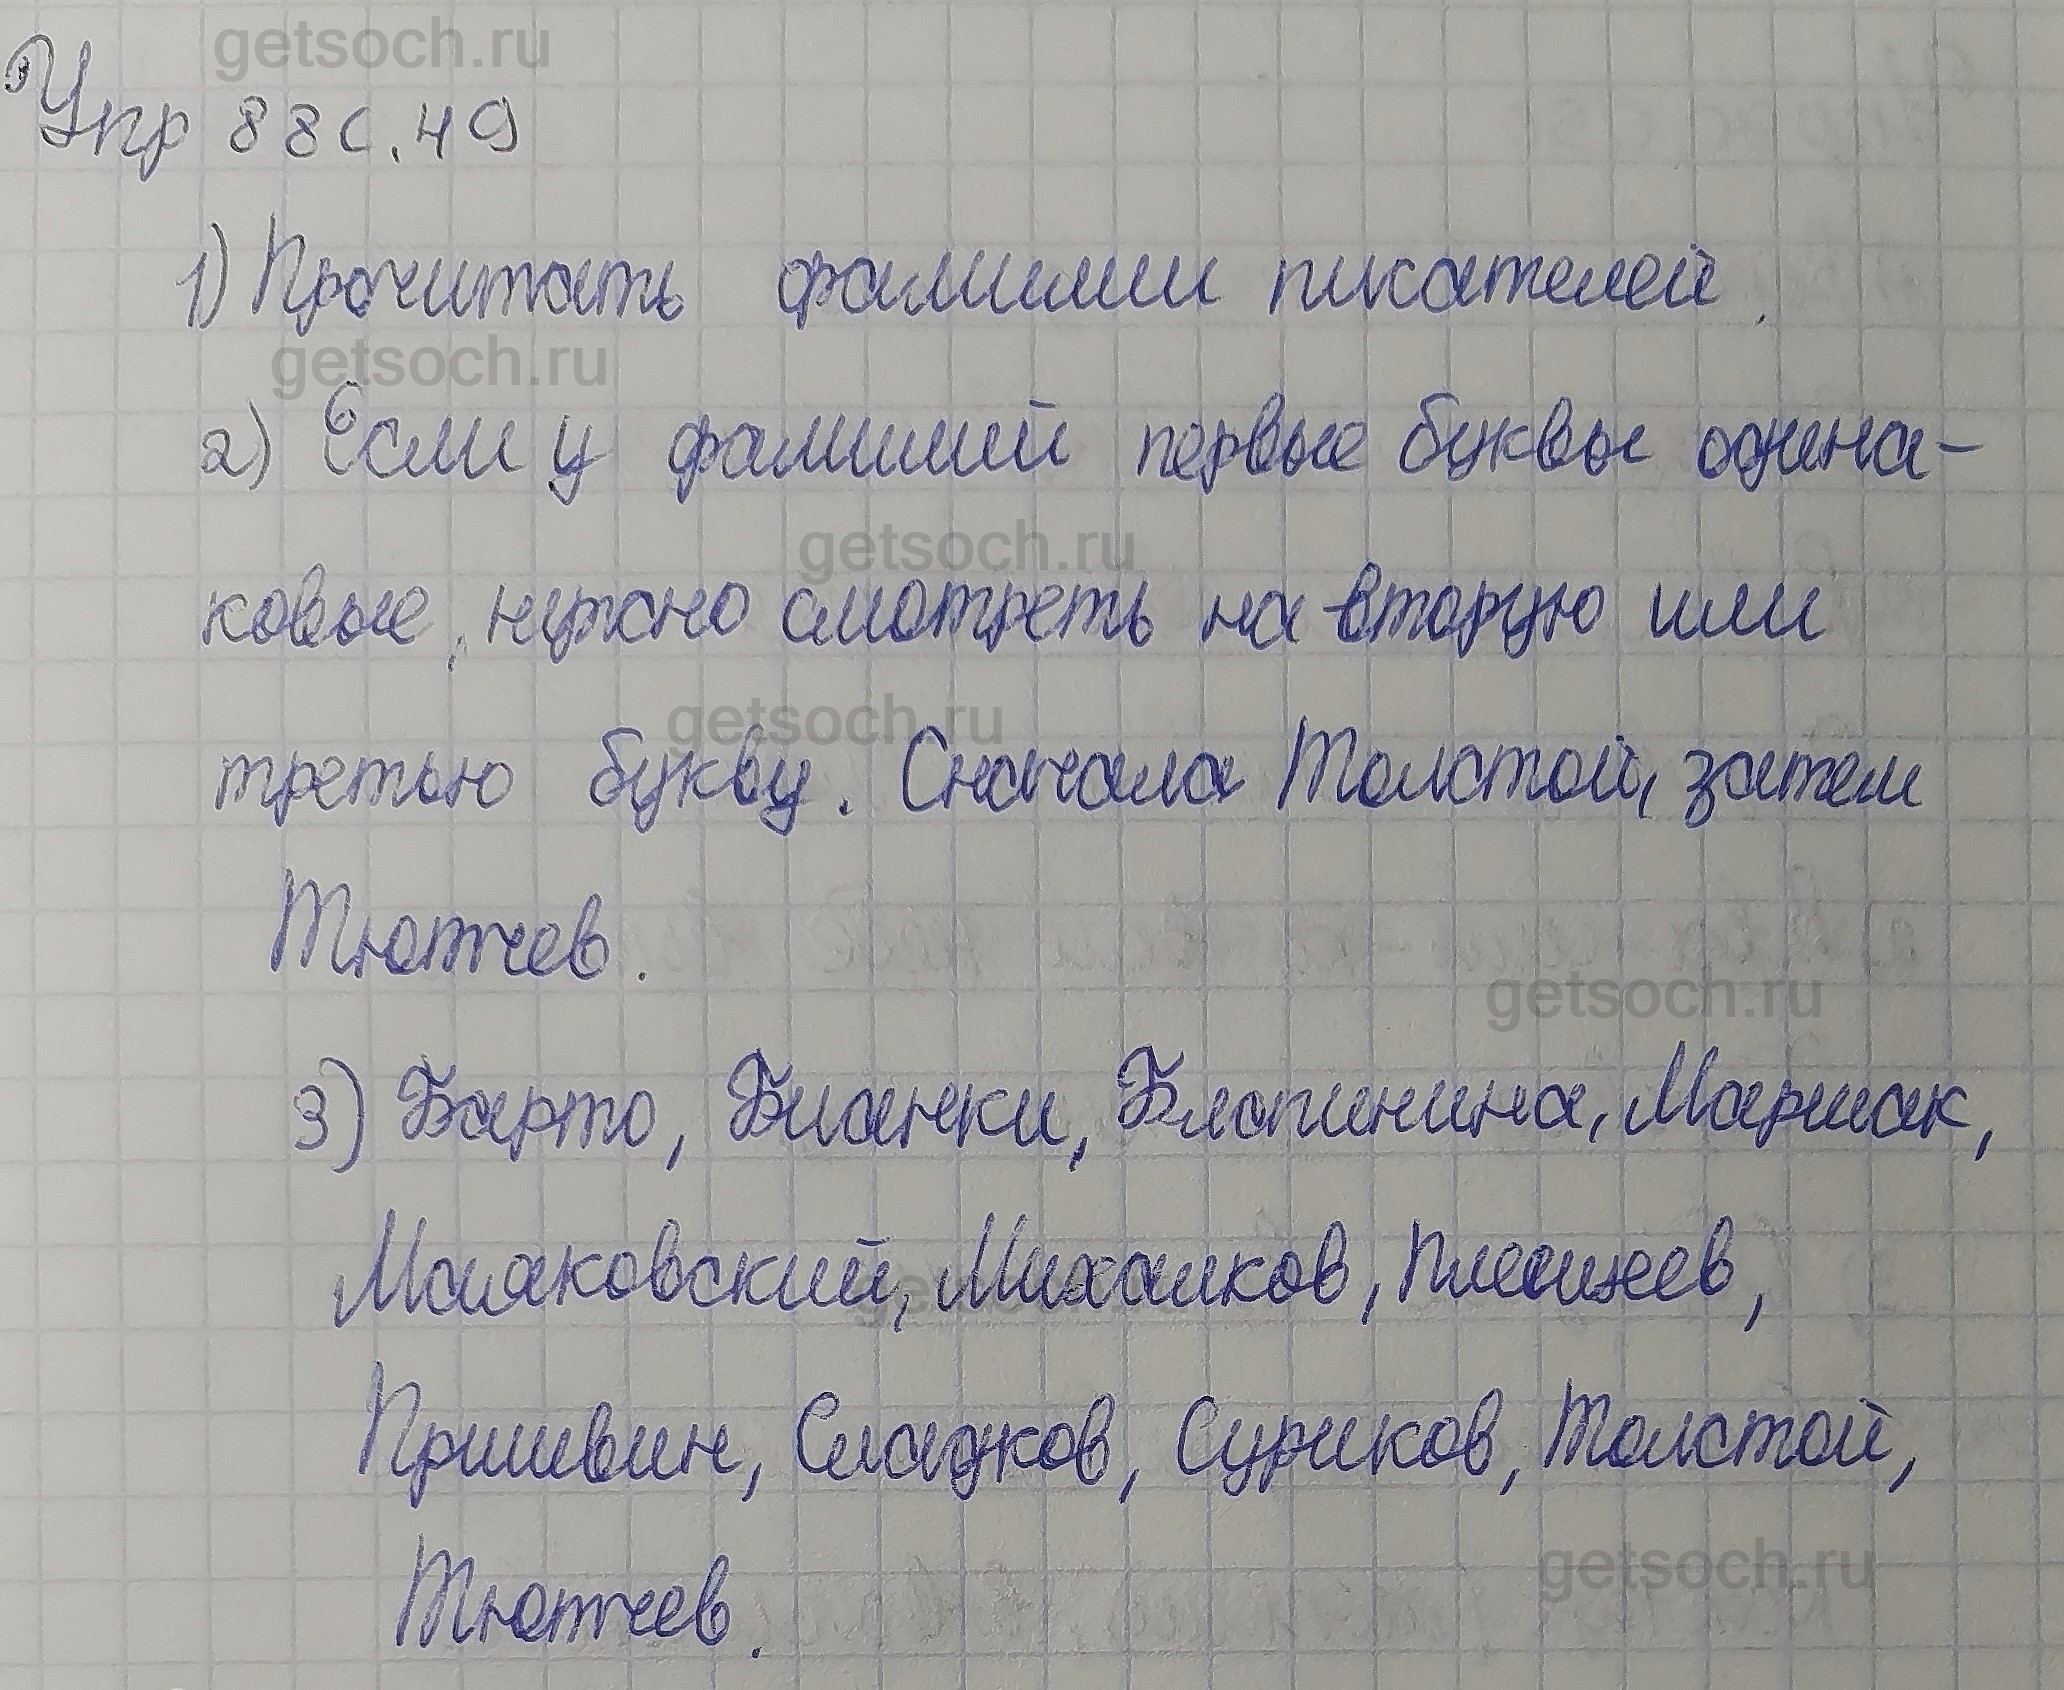 getsoch.ru
Упр 88 с. 49
1) Прочитать фамилии писателей.
getsoch.ru
2) Если у фамилий первые буквы одина-
getsoch.ru
ковые, нужно смотреть на вторую или
getsoch.ru
третью букву. Сначала Толстой, затем
Тютчев.
getsoch.ru
3) Барто, Бианки, Благинина, Маршак,
Маяковский, Михалков, Плещеев,
Пришвин, Сладков, Суриков, Толстой,
getsoch.ru
Тютчев.